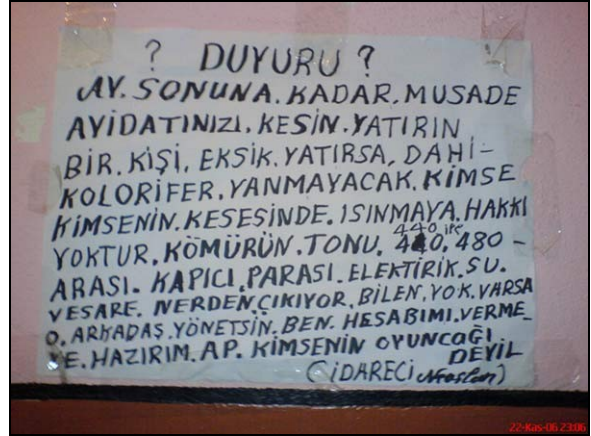 ? DUYURU ?
AY. SONUNA. KADAR. MUSADE
AYİDATINIZI. KESİN. YATIRIN
BİR. KİŞİ. EKSİK. YATIRSA, DAHİ-
KOLORİFER. YANMAYACAK. KİMSE
KİMSENİN. KESESİNDE. ISINMAYA. HAKKI
YOKTUR. KÖMÜRÜN. TONU. 440 ile 480-
ARASI. KAPICI. PARASI. ELEKTİRİK. SU.
VESARE. NERDEN ÇIKIYOR. BİLEN. YOK. VARSA
O. ARKADAŞ. YÖNETSİN. BEN. HESABIMI. VERME_
E. HAZIRIM. AP. KİMSENİN OYUNCAĞI
DEYİL
(İDARECİ
22-Kas-06 23:06